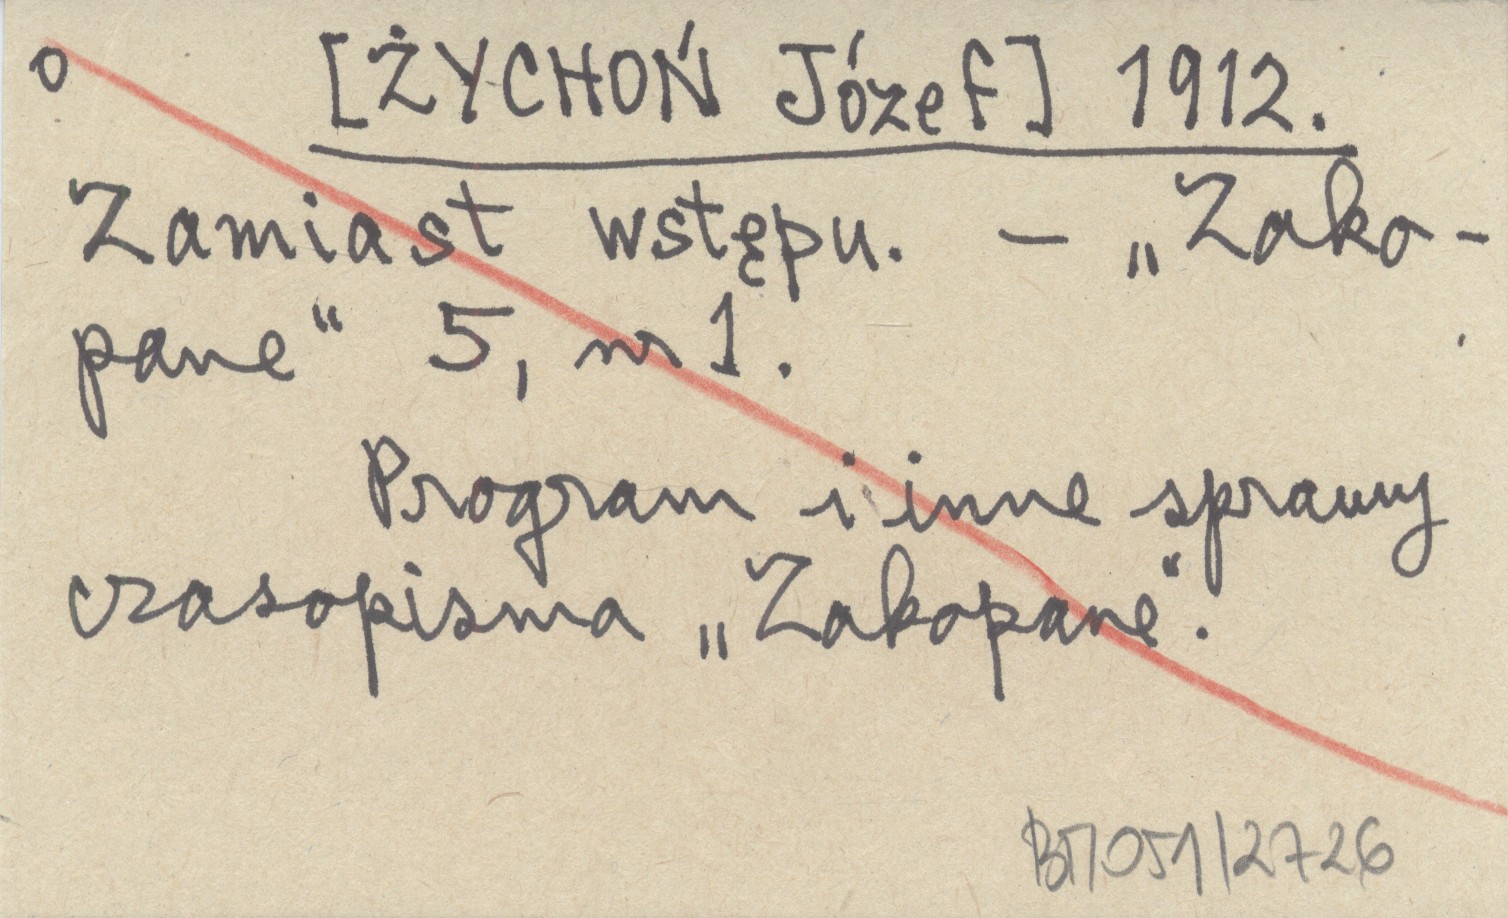 o [ŻYCHOŃ Józef] 1912.
Zamiast wstępu. – „Zako-
pane“ 5, nr 1.
Program i inne sprawy
czasopisma „Zakopane“.
BП051/2726